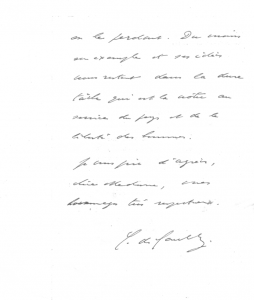 en le perdant. Du moins
son exemple et ses idées
nous restent dans la dure
tâche qui est la nôtre au
service du pays et de la
liberté des hommes.
Je vous prie d'agréer,
chère Madame, mes
hommages très respectueux.
C. de Gaulle.